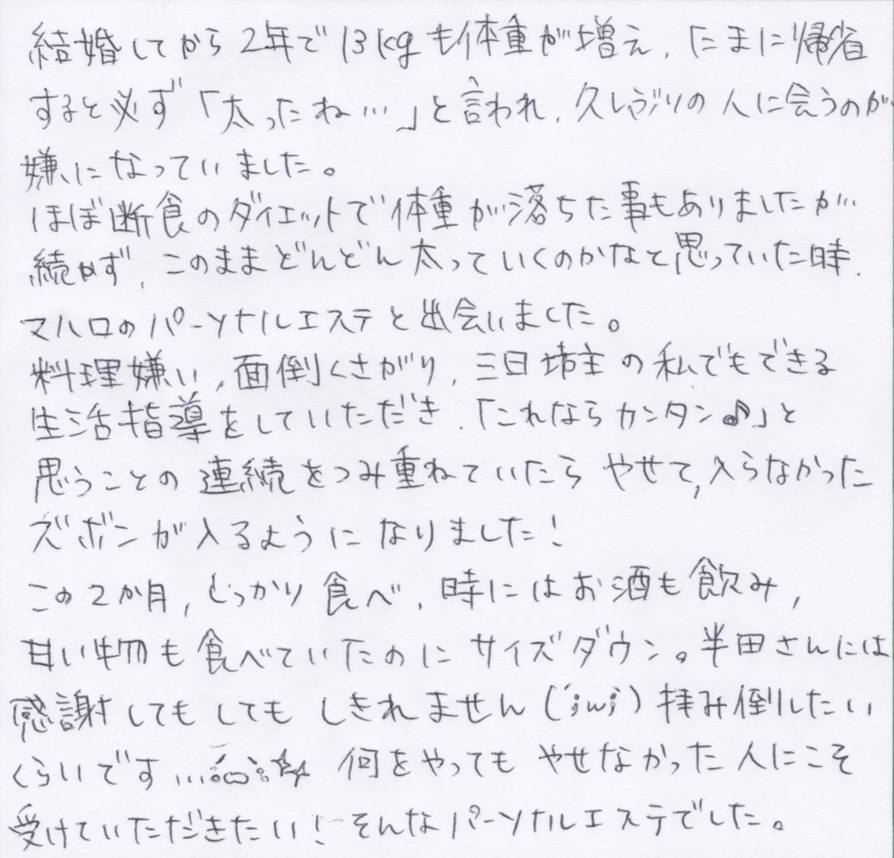 結婚してから2年で13kgも体重が増え、たまに帰省
すると必ず「太ったね…」と言われ、久しぶりの人に会うのが
嫌になっていました。
ほぼ断食のダイエットで体重が落ちた事もありましたが…
続かず、このままどんどん太っていくのかなと思っていた時、
マハロのパーソナルエステと出会いました。
料理嫌い、面倒くさがり、三日坊主の私でもできる
生活指導をしていただき、「これならカンタン♪」と
思うことの連続をつみ重ねていたらやせて、入らなかった
ズボンが入るようになりました！
この2か月、しっかり食べ、時にはお酒も飲み、
甘い物も食べていたのにサイズダウン。半田さんには
感謝してもしてもしきれません(´;ω;)拝み倒したい
くらいです…☆ 何をやってもやせなかった人にこそ
受けていただきたい！そんなパーソナルエステでした。